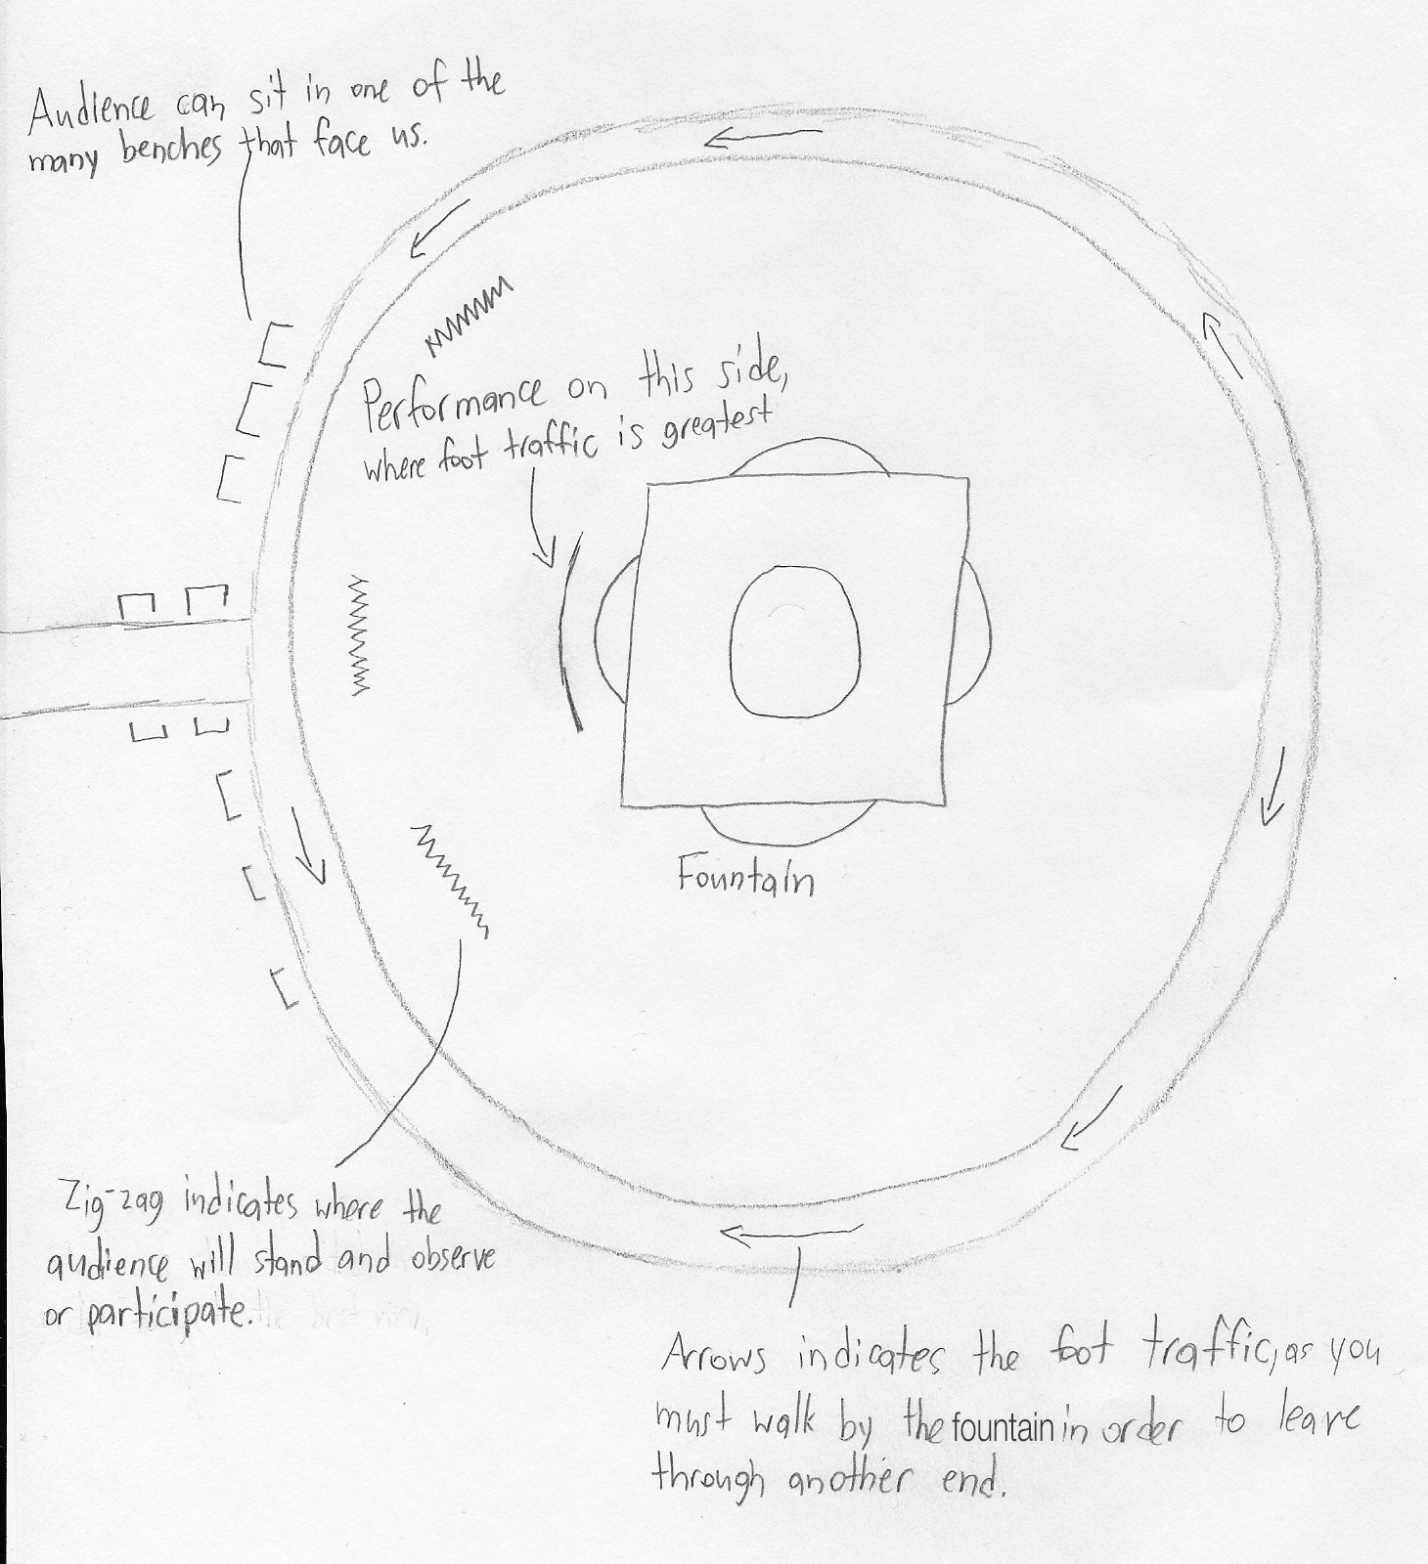 Audience can sit in one of the
many benches that face us.
Performance on this side,
where foot traffic is greatest
Fountain
Zig-zag indicates where the
audience will stand and observe
or participate.
Arrows indicates the foot traffic, as you
must walk by the fountain in order to leave
through another end.